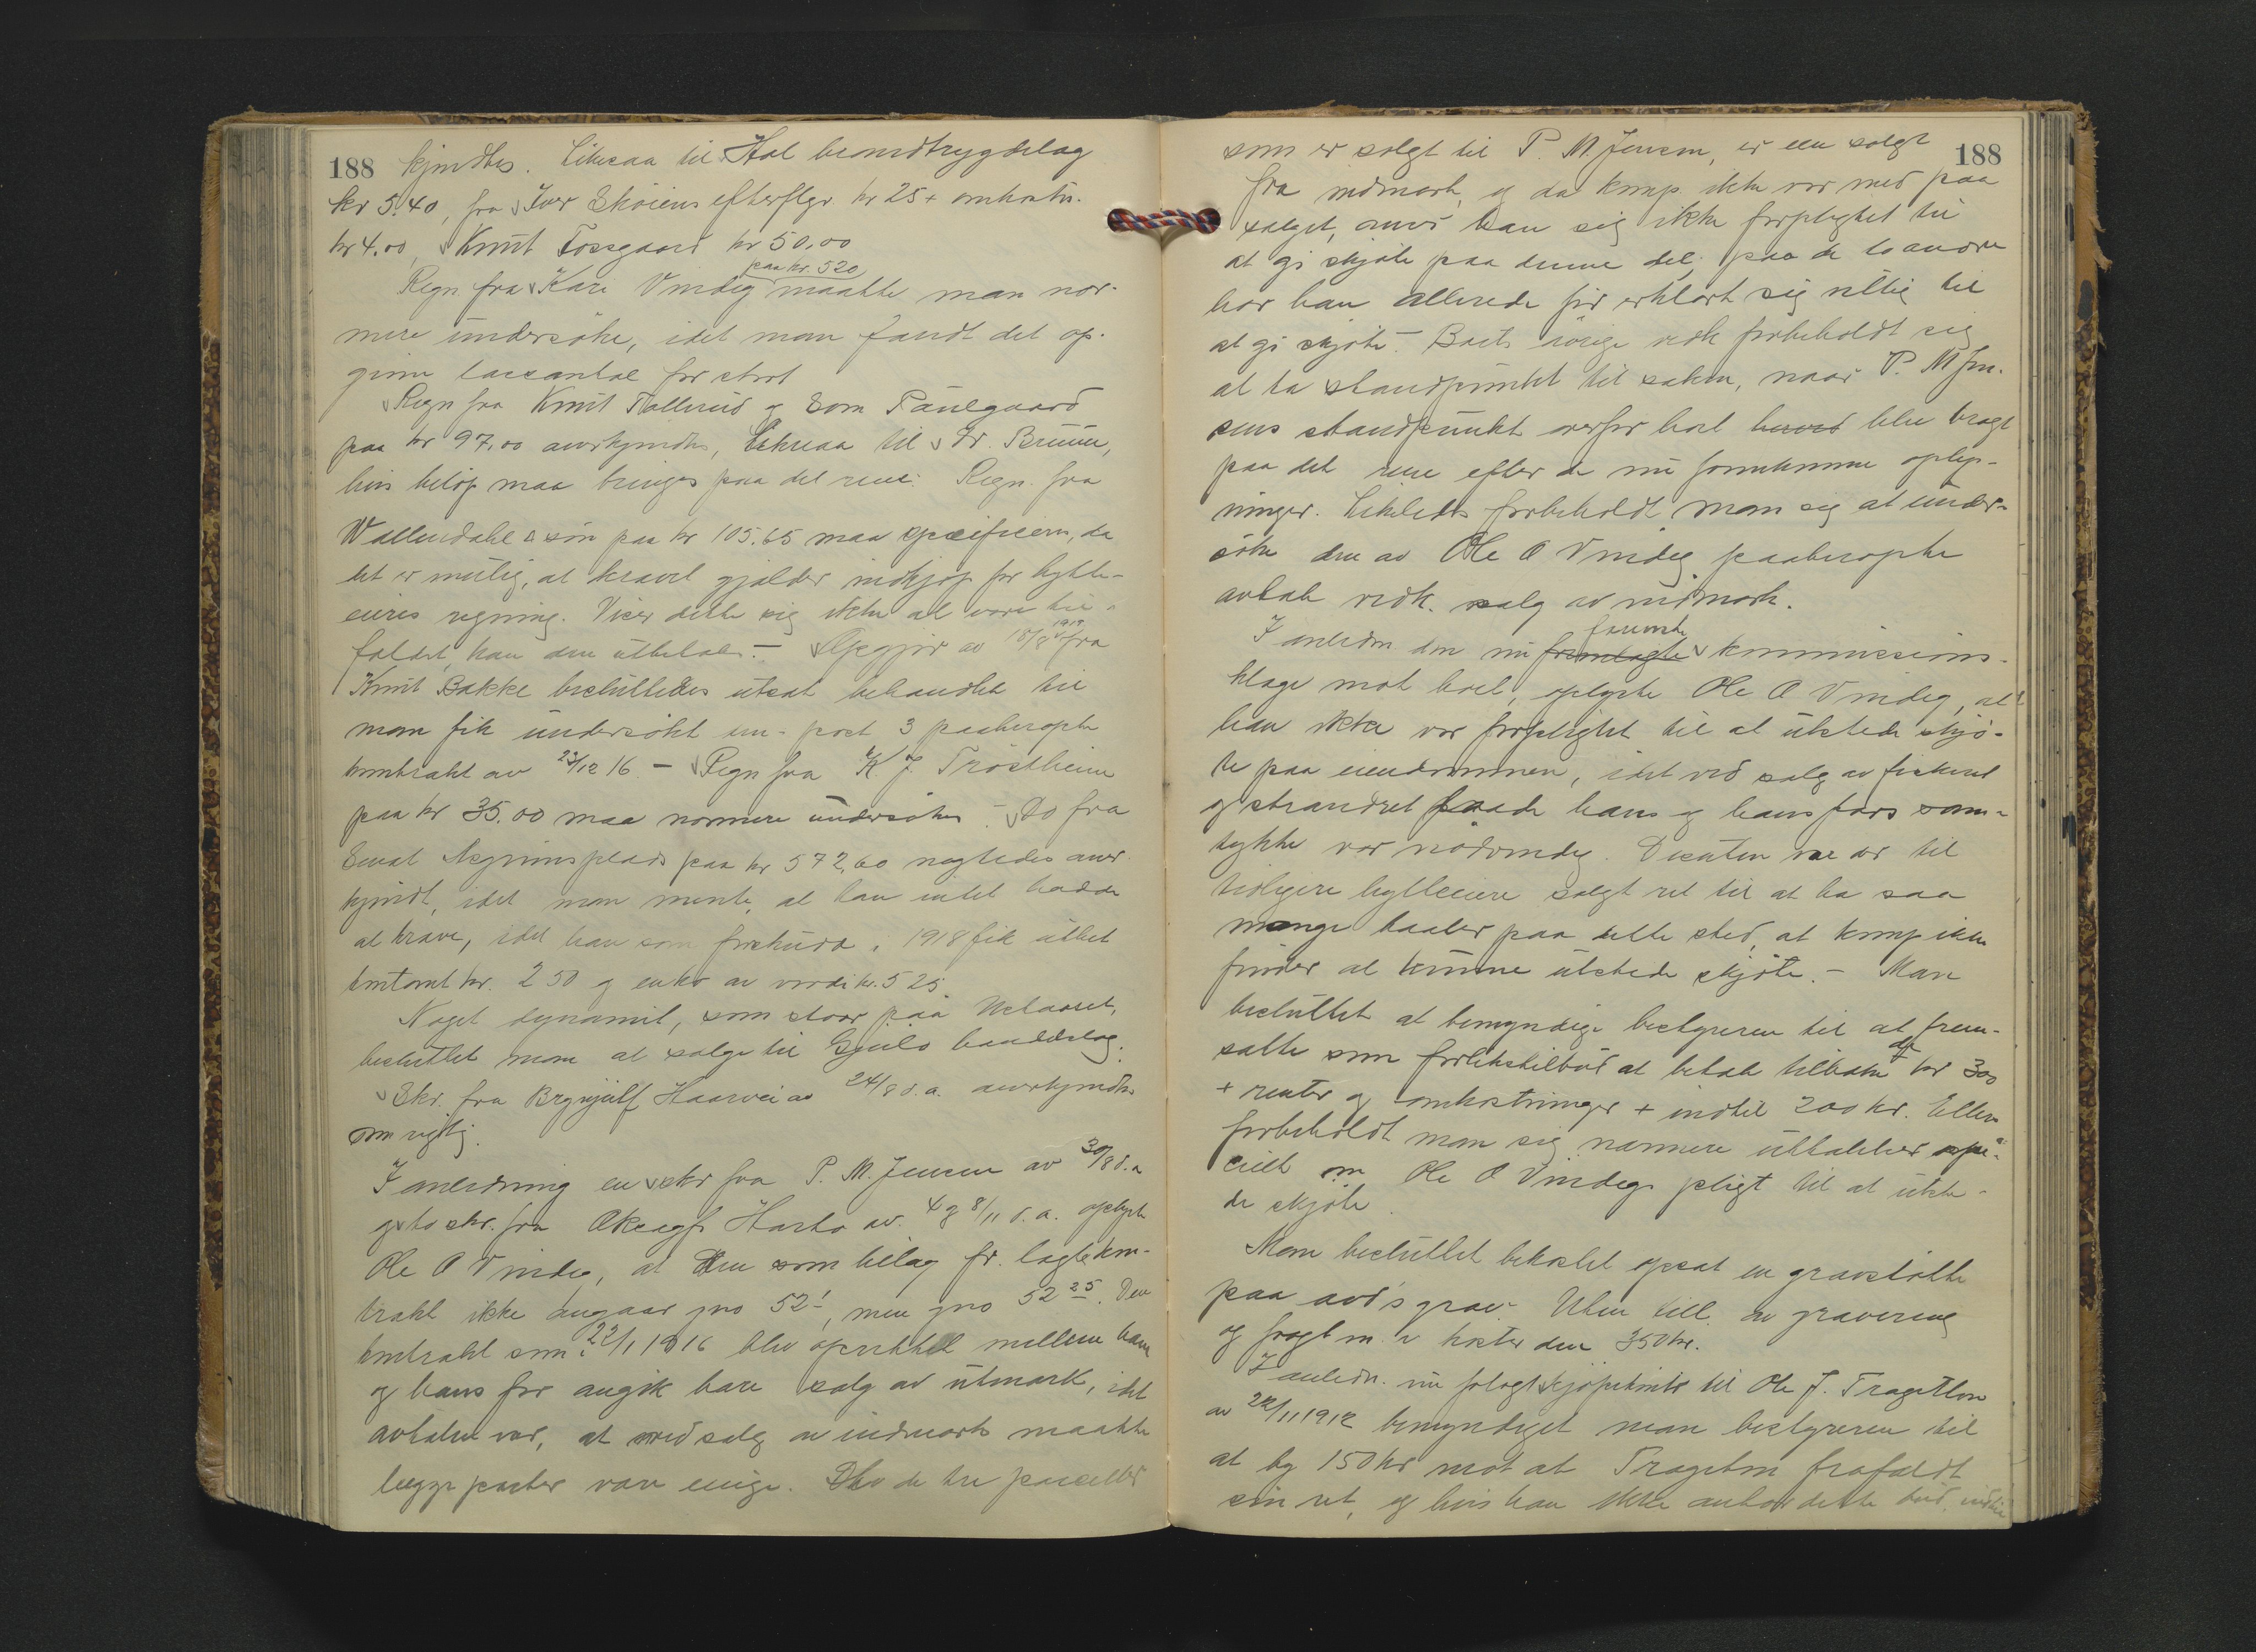 188 kjendtes. Likesaa til Hol brandtrygdelag
kr 5.40, fra Iver Skoiens efterflgr. kr 25 + omkostn.
kr 4.00, Knut Fossgaard kr 50.00
paa kr. 520
Regn. fra Kari Vindeg maatte man nær-
mere undersøke, idet man fandt det op-
givne lassantal for stort
Regn fra Knut Tollerud og Paulgaard
paa kr 97.00 anerkjendtes, likesaa til Dr. Bruun,
hvis beløp maa bringes paa det rene. Regn. fra
Wallendahl & søn paa kr 105.65 maa specificeres, da
det er mulig, at kravet gjælder indkjøp for hytte-
eieres regning. Viser dette sig ikke at være til-
fældet, kan den utbetales. – Opgjør av 18/8 1919 fra
Knut Bakke besluttedes utsat behandlet til
man fik undersøkt en i post 3 paaberopte
kontrakt av 23/12 16 – Regn fra K J. Trøstheim
paa kr 35.00 maa nærmere undersøkes – Do fra
plads paa kr 572,60 negtedes aner-
kjendt, idet man mente, at han intet hadde
at kræve, idet han som forskudd i 1918 fik utbet
kontant kr. 250 og en ko av værdi kr. 525
Noget dynamit, som staar paa Ustaoset,
besluttet man at sælge til Geilo handelslag.
Skr. fra Brynjulf Haarvei av 24/8 d.a. anerkjendtes
som rigtig.
I anledning en skr fra P. M. Jensen av 30/8 d.a
og to skr. fra Oksagf. Harto av. 4 og 8/11 d.a. oplyste
Ole O Vindeg, at den som bilag fr. lagte kon-
trakt ikke angaar gno 52/1, men gno 52 25. Den
kontrakt som 22/1 1916 blev oprettet mellem ham
og hans far angik bare salg av utmark, idet
avtalen var, at ved salg av indmark maatte
begge parter være enige. Av de tre parceller
188
som er solgt til P. M. Jensen, er den solgt
fra indmark, og da komp. ikke var med paa
salget, anser han sig ikke forpligtet til
at gi skjøte paa denne del; paa de to andre
har han allerede før erklært sig villig til
at gi skjøte. – Boets øvrige vedk forbeholdt sig
at ta standpunkt til saken, naar P. M Jen-
sens standpunkt overfor boet herved blev bragt
paa det rene efter de nu fremkomne oplys-
ninger. Likeledes forbeholdt man sig at under-
søke den av Ole O Vindeg paaberopte
avtale vedk. salg av indmark.
I anledn den nu fremlagte foreviste kommissions-
klage mot boet, oplyste Ole O Vindeg, at
han ikke var forpligtet til at utstede skjø-
te paa eiendommen, idet ved salg av fiskeret
og strandret baade hans og hans fars sam-
tykke var nødvendig. Desuten var der til
tidligere hytteeiere solgt ret til at ha saa
mange baater paa dette sted, at komp ikke
finder at kunne utstede skjøte. – Man
besluttet at bemyndige bestyreren til at frem-
sætte som forlikstilbud at betale tilbake de kr 300
+ renter og omkostninger + indtil 200 kr. Ellers
forbeholdt man sig nærmere uttalelser spe-
cielt om Ole O Vindegs pligt til at utste-
de skjøte.
Man besluttet bekostet opsat en gravstøtte
paa avd's grav. Uten till. av gravering
og fragt m.v koster den 350 kr.
I anledn. nu frlagt kjøpekontr til Ole J. Trageton
av 22/11 1912 bemyndiget man bestyreren til
at by 150 kr mot at Trageton frafaldt
sin ret, og hvis han ikke antar dette bud, indtil